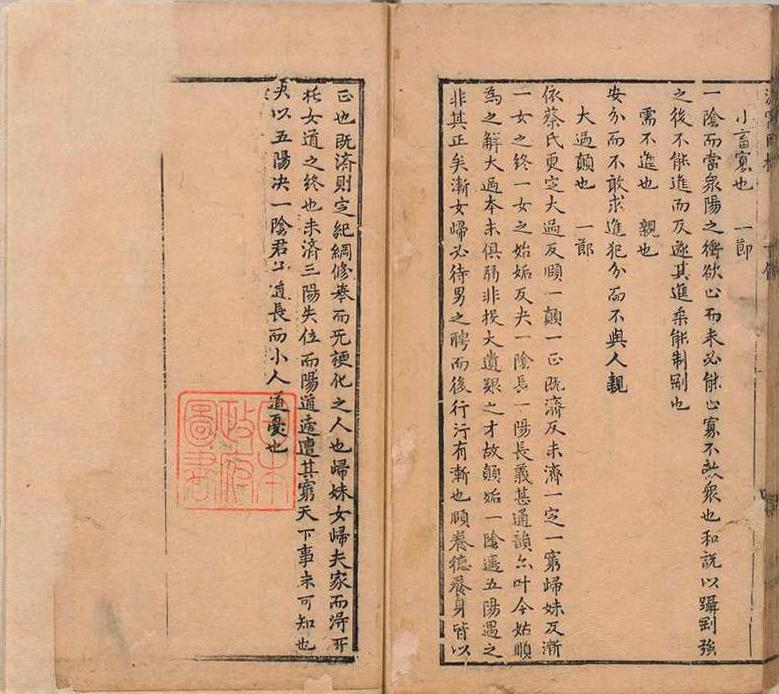 小畜寡也 一節
一陰而當衆陽之衝欲止而未必能止寡不敵衆也和說以躡剛強
之後不能進而反遂其進柔能制剛也
需不進也 親也
安分而不敢求進犯分而不與人親
大過顛也 一節
依蔡氏更定大過反頤一顛一正既濟反未濟一定一窮歸妹反漸
一女之終一女之始姤反夬一陰長一陽長義甚通韻亦叶今姑順
為之解大過本末俱弱非投大遺艱之才故顛姤一陰遇五陽遇之
非其正矣漸女歸必待男之聘而後行行有漸也頤養德養身皆以
正也既濟則定紀綱修舉而旡梗化之人也歸妹女歸夫家而得所
女道之終也未濟三陽失位而陽道適遭其窮天下事未可知也
夬以五陽决一陰君子道長而小人道憂也
日本
政府
圖書